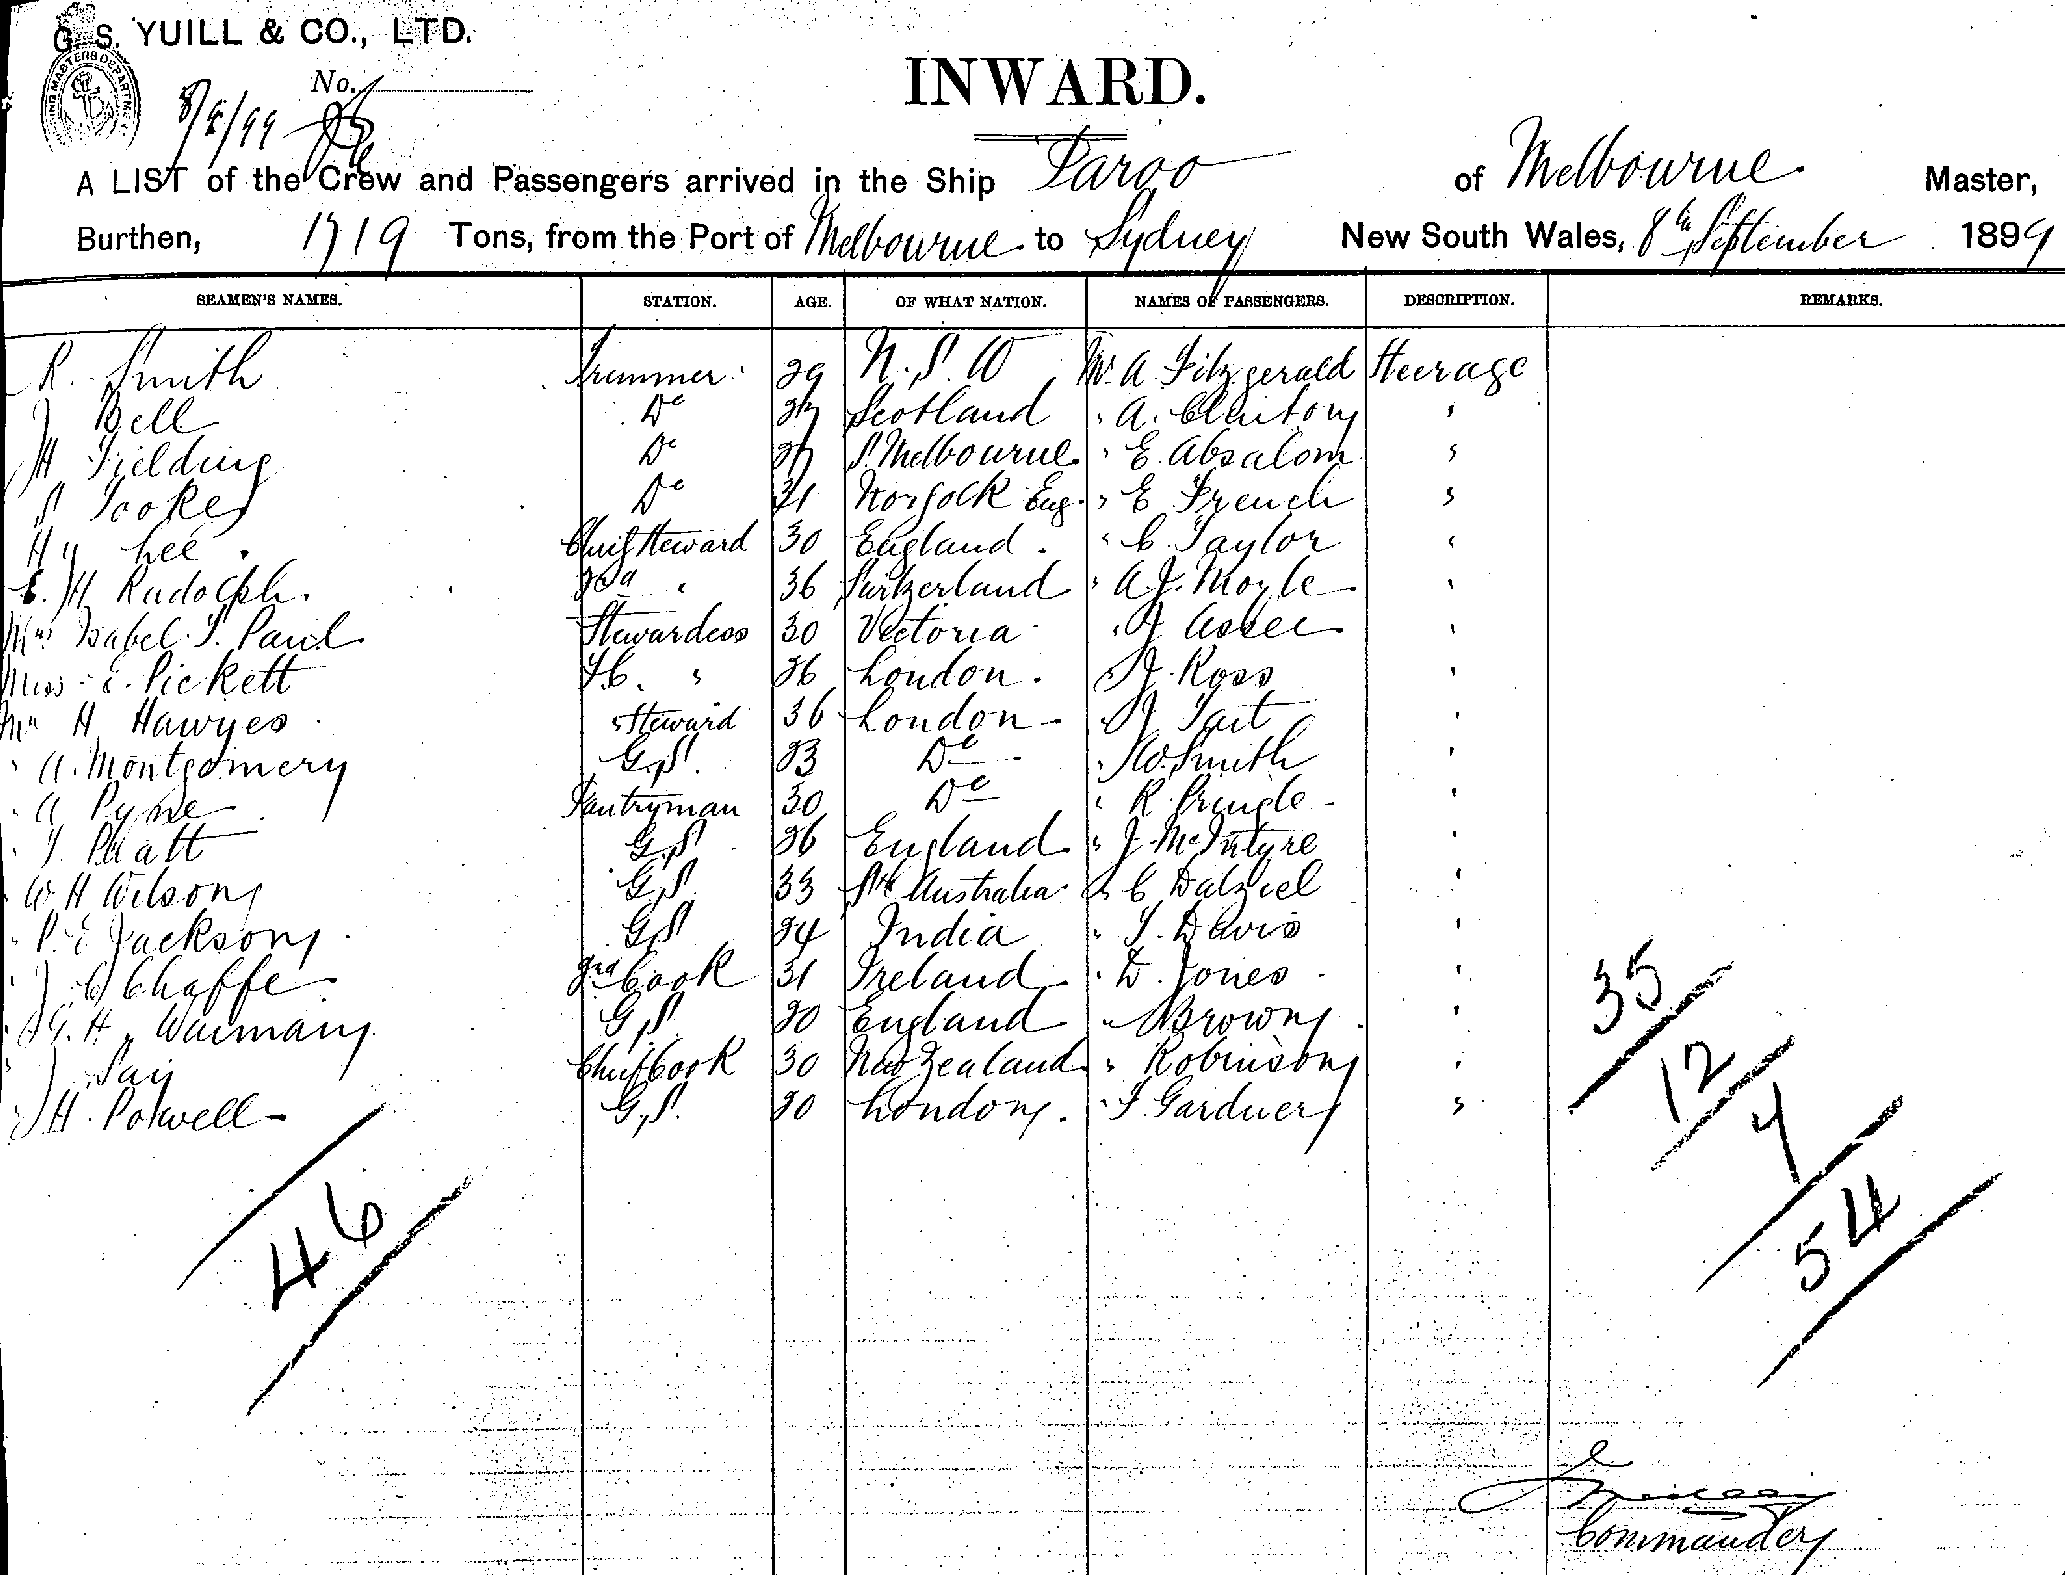 G. S. YUILL & CO., LTD.
No.
8/9/99
INWARD.
A LIST of the Crew and Passengers arrived in the Ship Paroo of Melbourne Master,
Burthen, 1719 Tons, from the Port of Melbourne to Sydney New South Wales, 8th September 1899
SEAMEN'S NAMES. STATION. AGE. OF WHAT NATION. NAMES OF PASSENGERS. DESCRIPTION. REMARKS.
R. Smith Trimmer 29 N.S.W Mr. A Fitzgerald Steerage
J Bell Do 27 Scotland " A. Clinton "
H Fielding Do 27 P. Melbourne " E. Absalom "
S Tooke Do 31 Norfolk Eng. " E French "
Hy Lee Chief Steward 30 England " C. Taylor "
E. H Rudolph 2nd " 36 Switzerland " A J. Moyle "
Mrs Isabel T. Paul Stewardess 30 Victoria " J "
Miss E. Pickett " 26 London " J. Ross "
Mr H Hawyes Steward 36 London " J Tait "
" A. Montgomery G.S. 23 Do " W. Smith "
" A Pyne Pantryman 30 Do " R. Pringle "
" T. Platt G.S 26 England " J. McIntyre "
W H Wilson G.S. 33 Sth Australia " C Dalziel "
" P. E Jackson G.S 24 India " T. Davis "
" J C Chaffe 3rd Cook 31 Ireland " D. Jones "
" G. H Waiman G.S. 20 England " Brown "
" J Say Chief Cook 30 New Zealand " Robinson "
" H. Powell G.S. 20 London " T. Gardner "
35
12
4 7
46
54
Commander